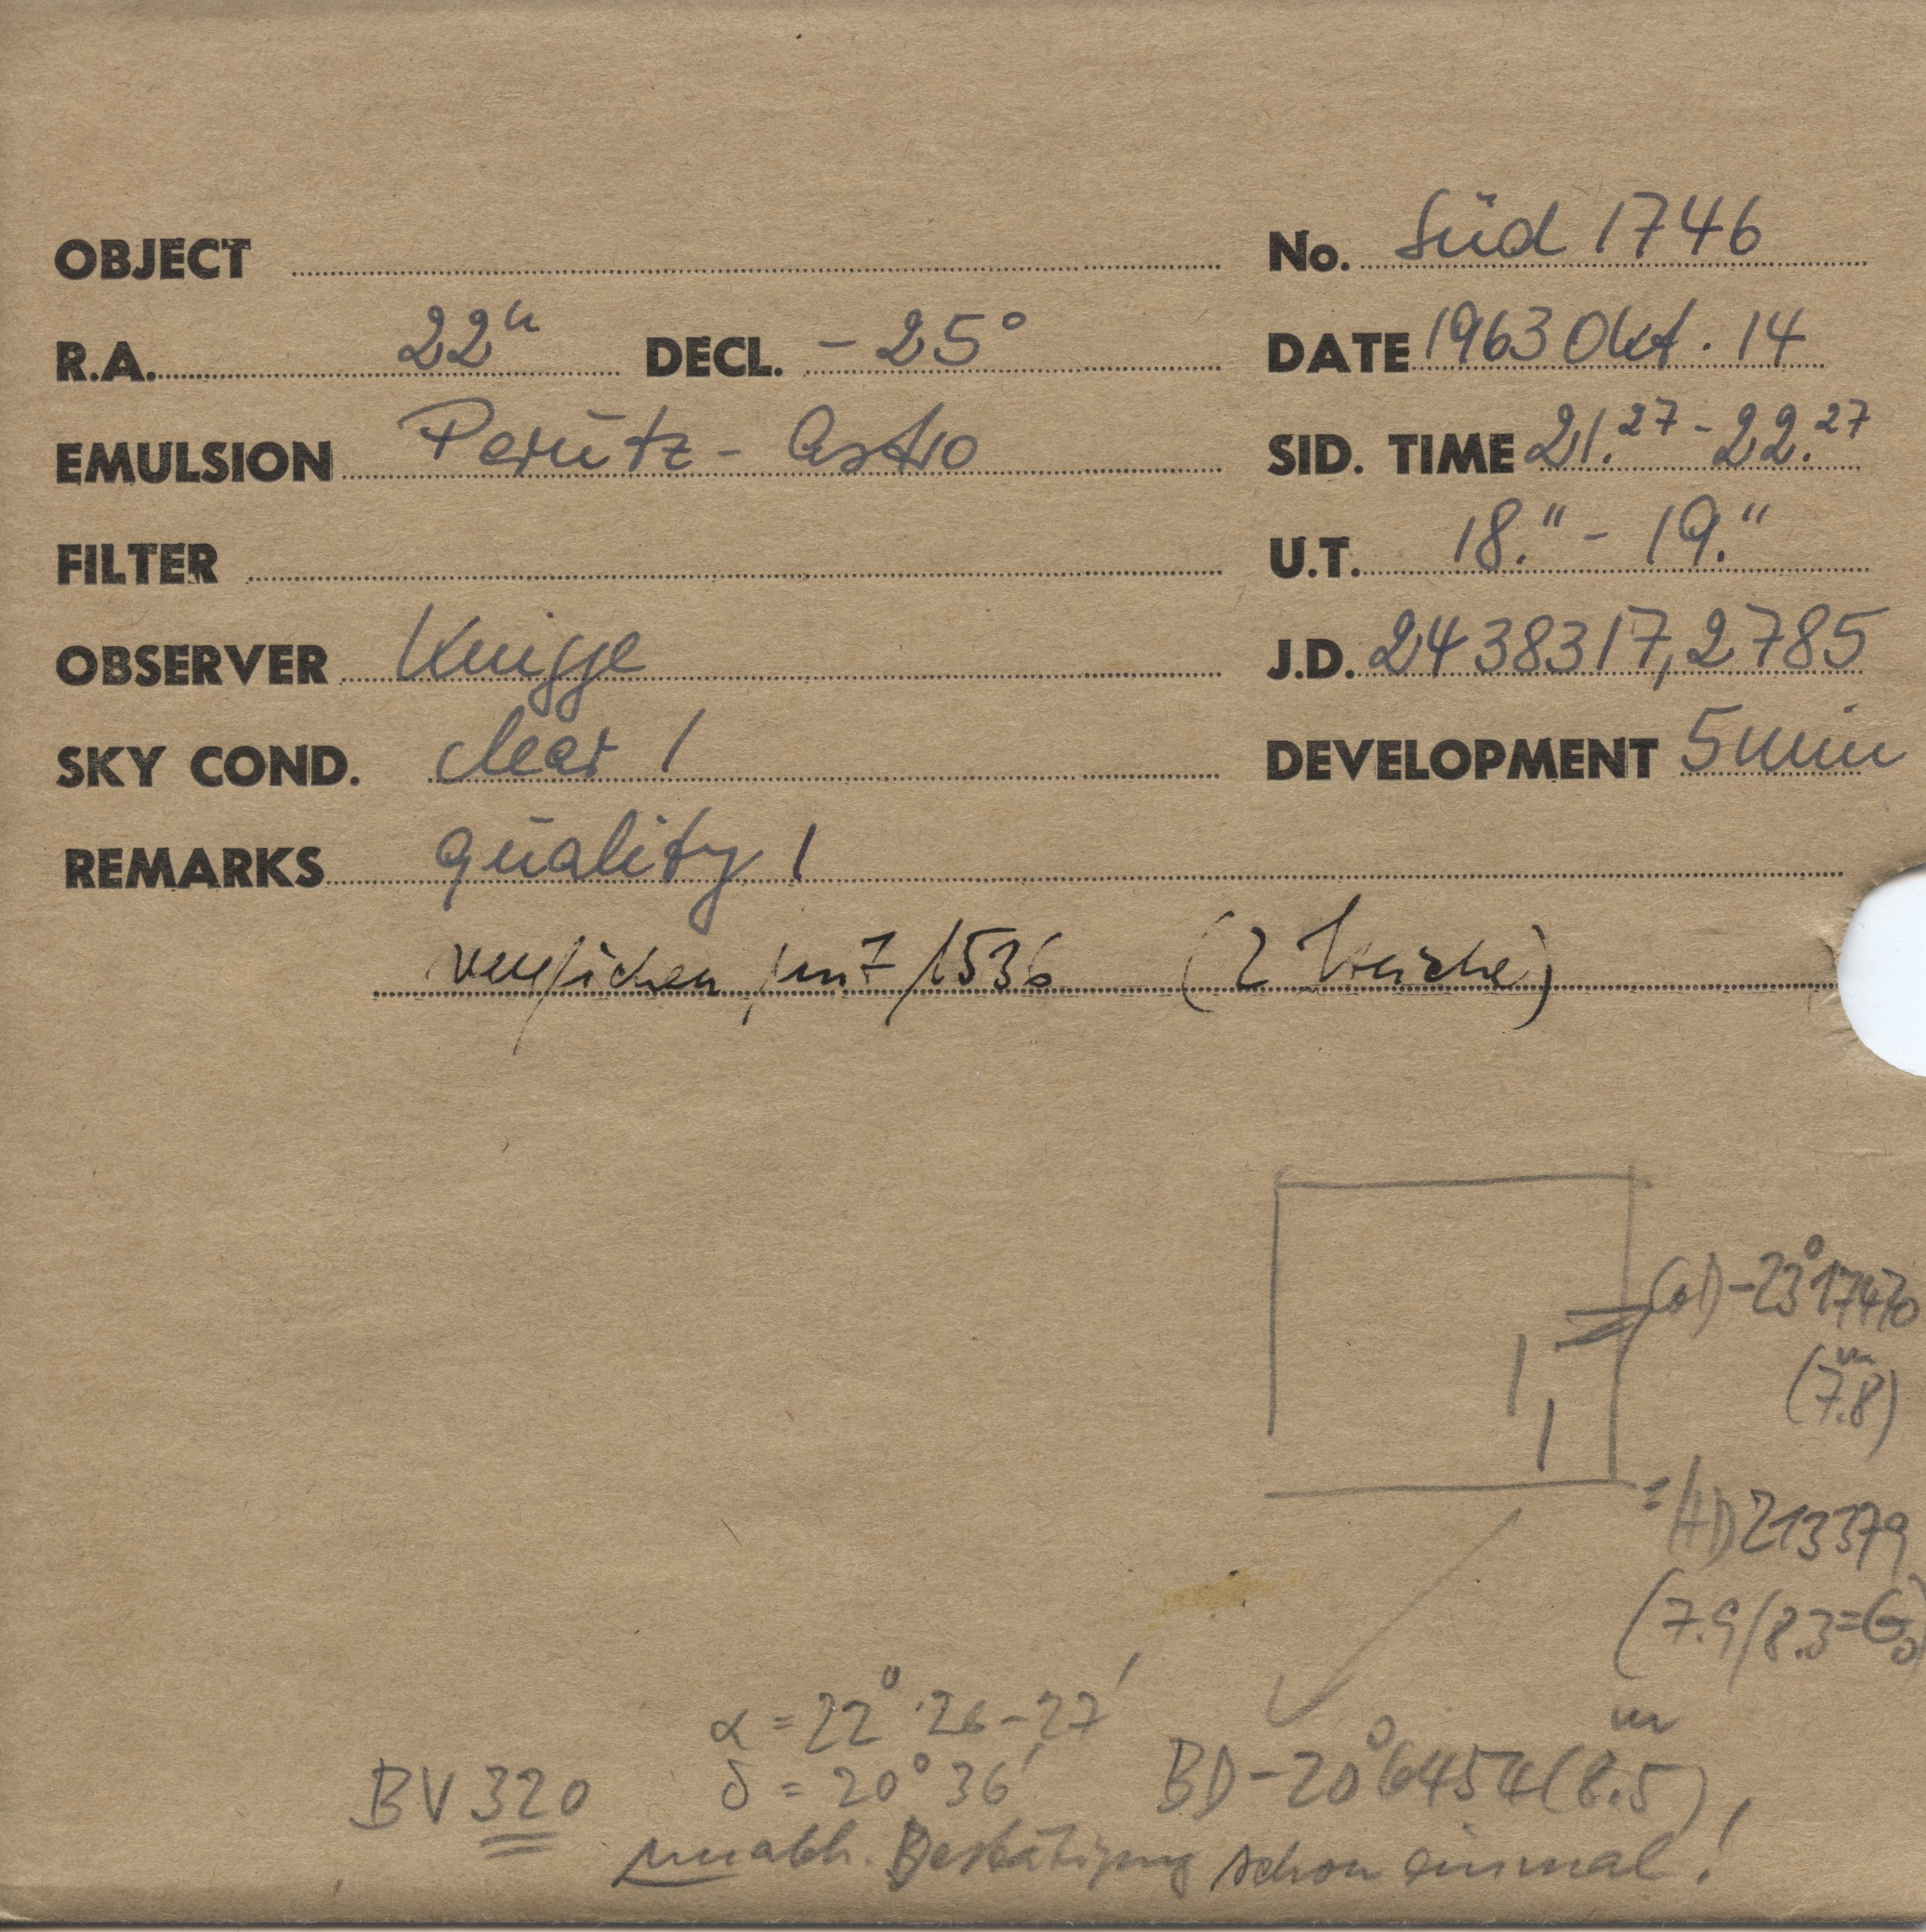 OBJECT No. Süd 1746
R.A. 22h DECL. -25° DATE 1963 Okt. 14
EMULSION Perutz-Astro SID. TIME 21.27-22.27
FILTER U.T. 18.11-19.11
OBSERVER Knigge J.D. 2438317,2785
SKY COND. clear 1 DEVELOPMENT 5 min
REMARKS quality 1
verglichen mit 1536 (2 Striche)
CoD-23°17470
(7.8m)
= HD 213379
(7.9/8.3=G0)
α = 22° 26-27'
BV 320 δ = 20° 36' BD-20°6454 (8.5m)
unabh. Bestätigung schon einmal!